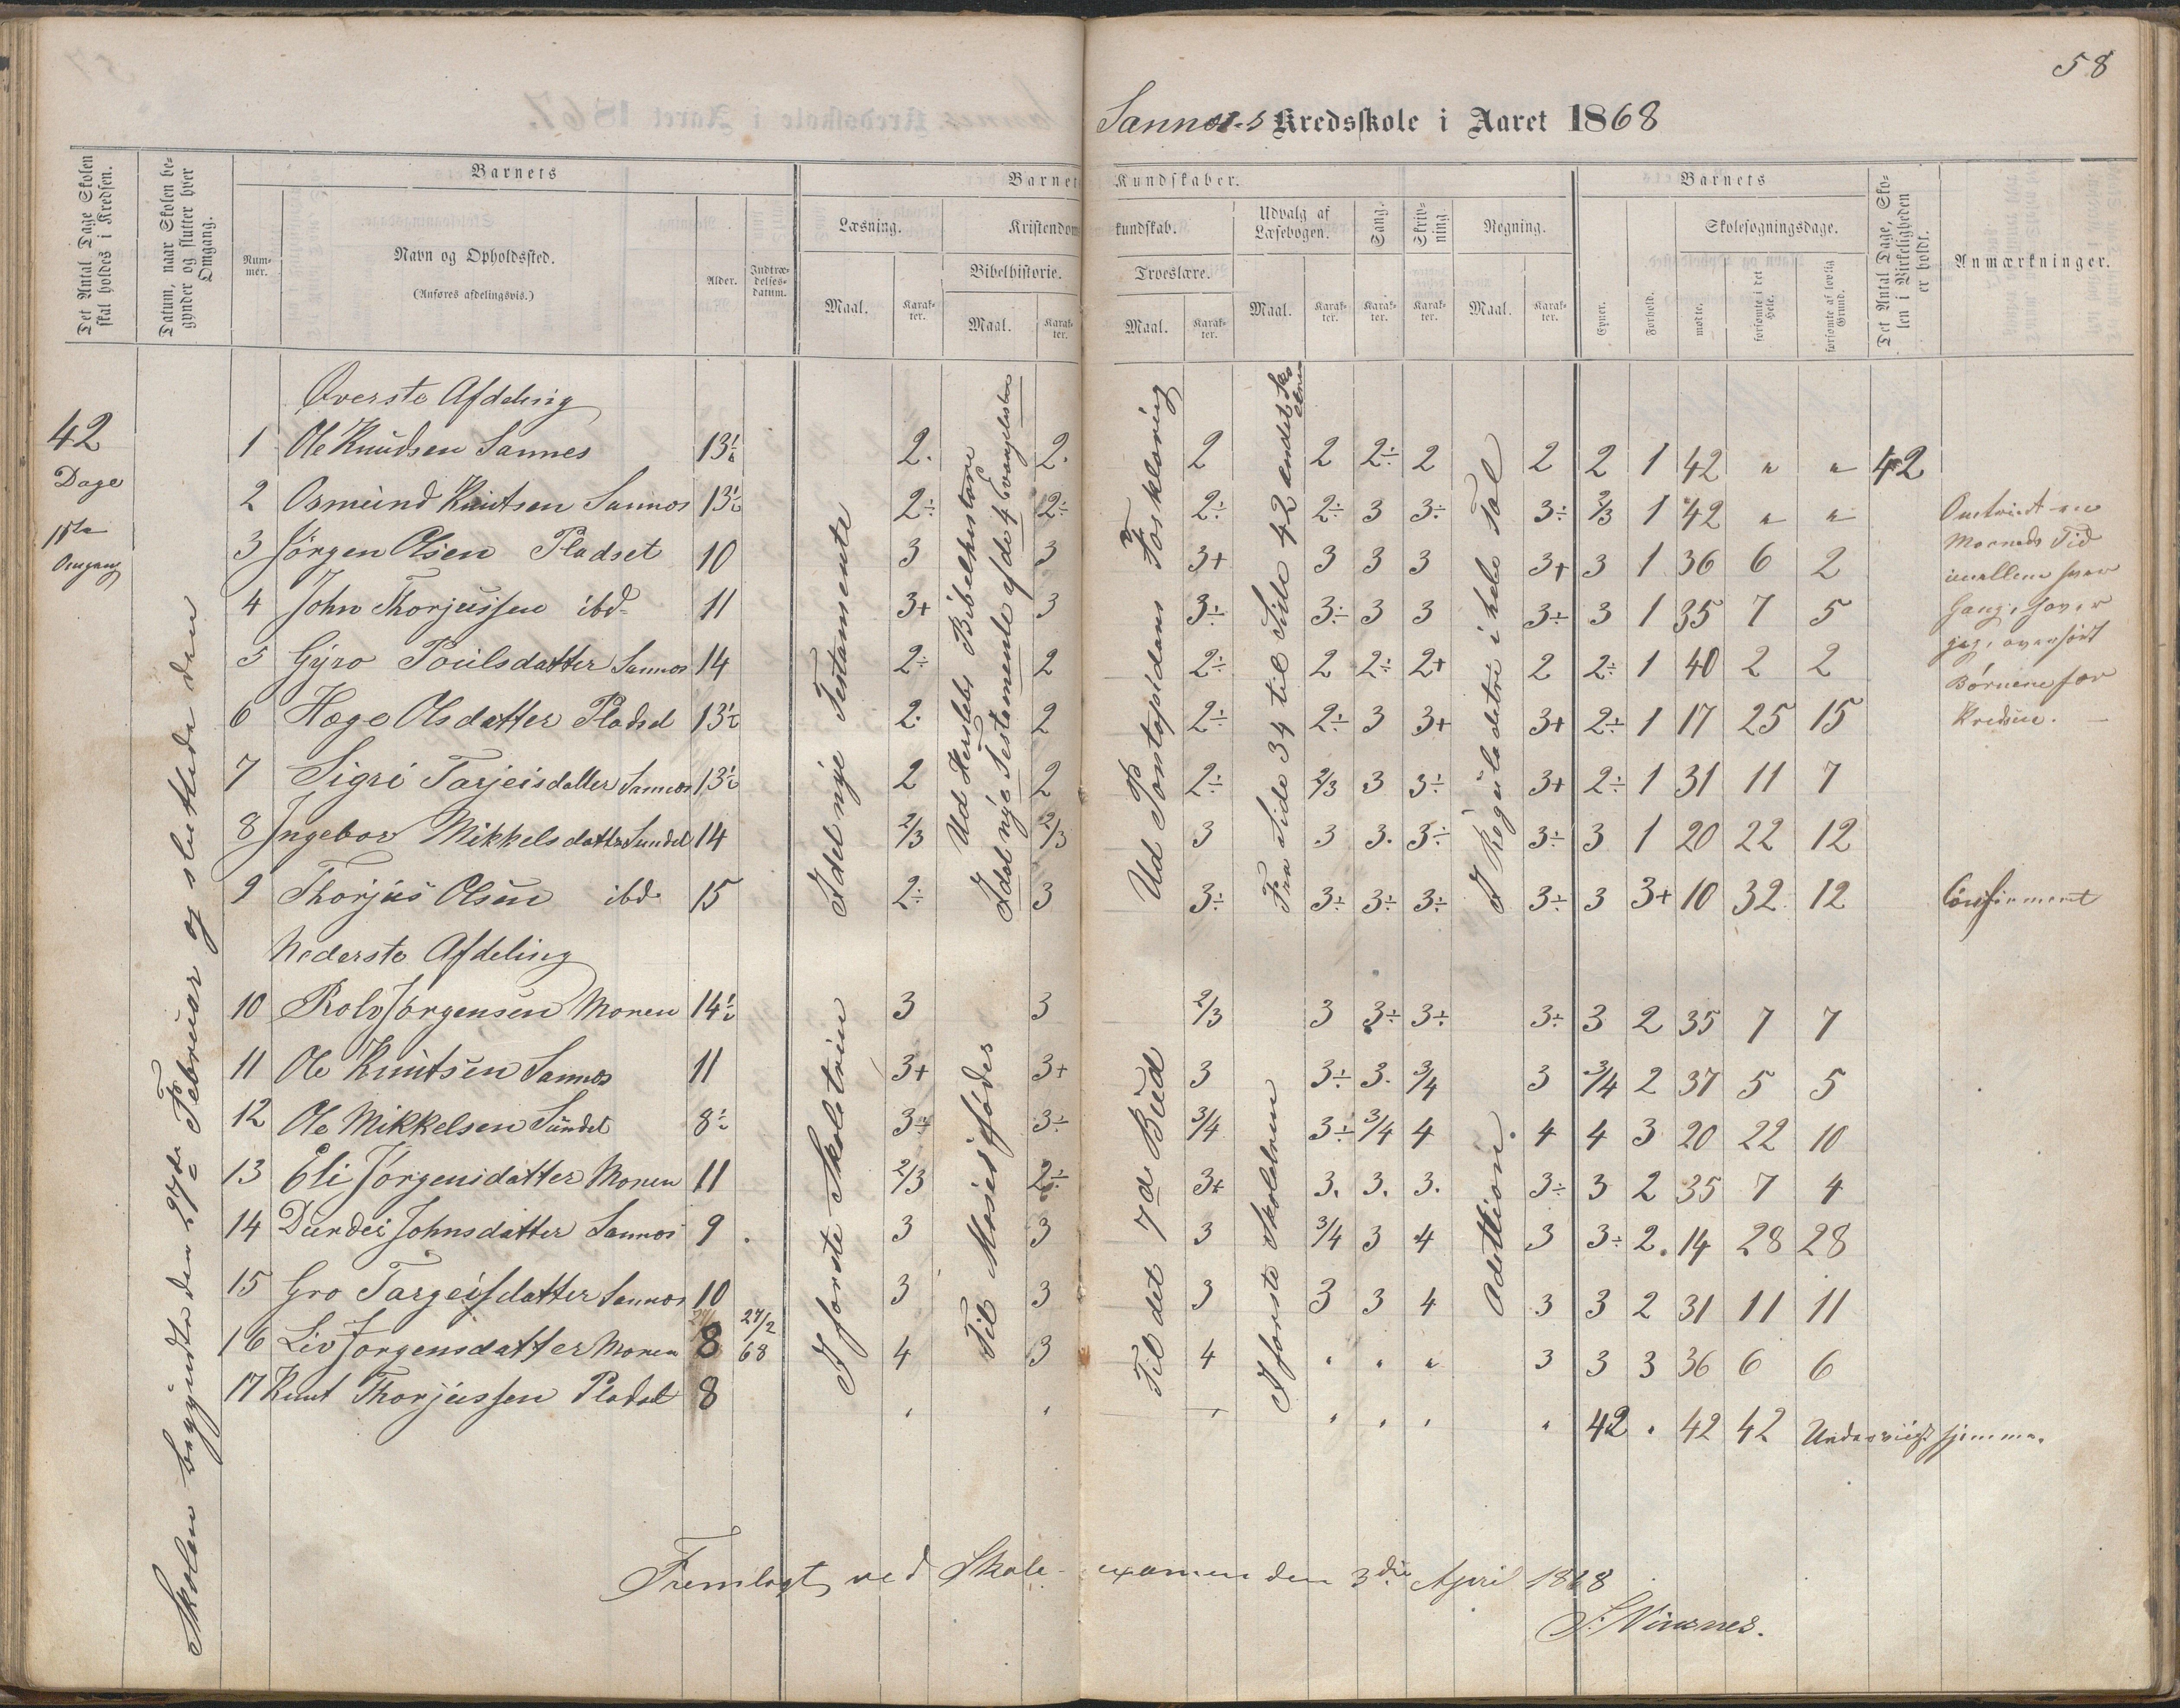 58
Sannes Kredsskole i Aaret 1868
Det Antal Dage Skolen skal holdes i Kredsen.
Datum, naar Skolen begynder og slutter hver Omgang.
Barnets
Nummer.
Navn og Opholdssted.
(Anføres afdelingsvis.)
Alder.
Indtrædelsesdatum.
Barnets Kundskaber.
Læsning.
Maal.
Karakter.
Kristendomskundskab.
Bibelhistorie.
Maal.
Karakter.
Troeslære.
Maal.
Karakter.
Udvalg af Læsebogen.
Maal.
Karakter.
Sang.
Karakter.
Skrivning.
Karakter.
Regning.
Maal.
Karakter.
Barnets
Evner.
Forhold.
Skolesøgningsdage.
mødte.
forsømte i det Hele.
forsømte af lovlig Grund.
Det Antal Dage, Skolen i Virkeligheden er holdt.
Anmærkninger.
42
Dage
1ste
Omgang
Skolen begyndte den 27de Februar og sluttede den
Øverste Afdeling
1 Ole Knudsen Sannes 13½ 2. 2. 2 2 2÷ 2 2 2 1 42 " " 42
2 Osmund Knutsen Sannes 13½ 2÷ 2÷ 2÷ 2÷ 3 3÷ 3÷ 2/3 1 42 " "
3 Jörgen Olsen Pladset 10 3 3 3+ 3 3 3 3+ 3 1 36 6 2
4 John Thorjussen ibd 11 3+ 3 3÷ 3÷ 3 3 3÷ 3 1 35 7 5
5 Gyro Poulsdatter Sannes 14 2÷ 2 2÷ 2 2÷ 2+ 2 2÷ 1 40 2 2
6 Hæge Olsdatter Pladsd 13½ 2. 2 2÷ 2÷ 3 3+ 3+ 2÷ 1 17 25 15
7 Sigri Tarjeisdatter Sannes 13½ 2 2 2÷ 2/3 3 3÷ 3+ 2÷ 1 31 11 7
8 Ingebor Mikkelsdatter Sundet 14 2/3 2/3 3 3 3. 3÷ 3÷ 3 1 20 22 12
9 Thorjus Olsen ibd 15 2÷ 3 3÷ 3÷ 3÷ 3÷ 3÷ 3 3+ 10 32 12 Confirmert
I det nye Testamente
Ud Herslebs Bibelhistorie
I det nye Testamente af de 4 Evangelister
Ud Pontopidans Forklaring
Fra Side 34 til Side 42 andet
I Reguladetri i hele Tal
Omtrindt en
Maaneds Tid
imellem hver
Gang, haver
jeg, overhørt
Børnene for
Kredsen.
Nederste Afdeling
10 Rolv Jörgensen Monen 14½ 3 3 2/3 3 3÷ 3÷ 3÷ 3 2 35 7 7
11 Ole Knutsen Sannes 11 3+ 3+ 3 3÷ 3. 3/4 3 3/4 2 37 5 5
12 Ole Mikkelsen Sundet 8½ 3÷ 3÷ 3/4 3÷ 3/4 4 4 4 3 20 22 10
13 Eli Jörgensdatter Monen 11 2/3 2÷ 3+ 3. 3. 3. 3÷ 3 2 35 7 4
14 Durdei Johnsdatter Sannes 9 3 3 3 3/4 3 4 3 3÷ 2. 14 28 28
15 Gro Targeisdatter Sannes 10 3 3 3 3 3 4 3 3 2 31 11 11
16 Liv Jorgensdatter Monen 8 27/2 68 4 3 4 " " " 3 3 3 36 6 6
17 Knut Thorjussen Pladsd 8 " " " " " " " 42 " 42 42 Underviigt hjemme.
I forste Skoletrin
Til Mosis fødes
Til det 7de Bud
I forste Skoletrin
Adettion
Fremlagt ved Skole-examen den 3die April 1868
S. Vinsnes.